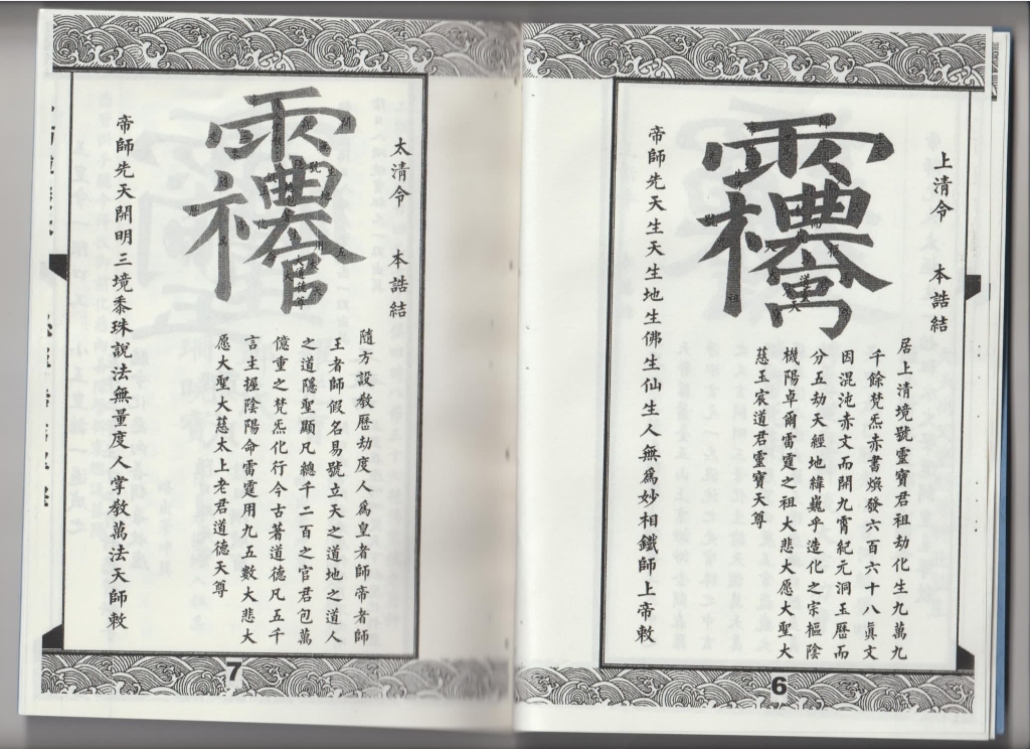 上清令　本誥結
居上清境號靈寶君祖劫化生九萬九
千餘梵炁赤書煥發六百六十八眞文
因混沌赤文而開九霄紀元洞玉曆而
分五劫天經地緯巍乎造化之宗樞陰
機陽卓爾雷霆之祖大悲大愿大聖大
慈玉宸道君靈寶天尊
帝師先天生天生地生佛生仙生人無爲妙相鐵師上帝敕
6
太清令　本誥結
隨方設教歷劫度人爲皇者師帝者師
王者師假名易號立天之道地之道人
之道隱聖顯凡總千二百之官君包萬
億重之梵炁化行今古著道德凡五千
言主握陰陽命雷霆用九五數大悲大
愿大聖大慈太上老君道德天尊
帝師先天開明三境黍珠說法無量度人掌教萬法天師敕
7